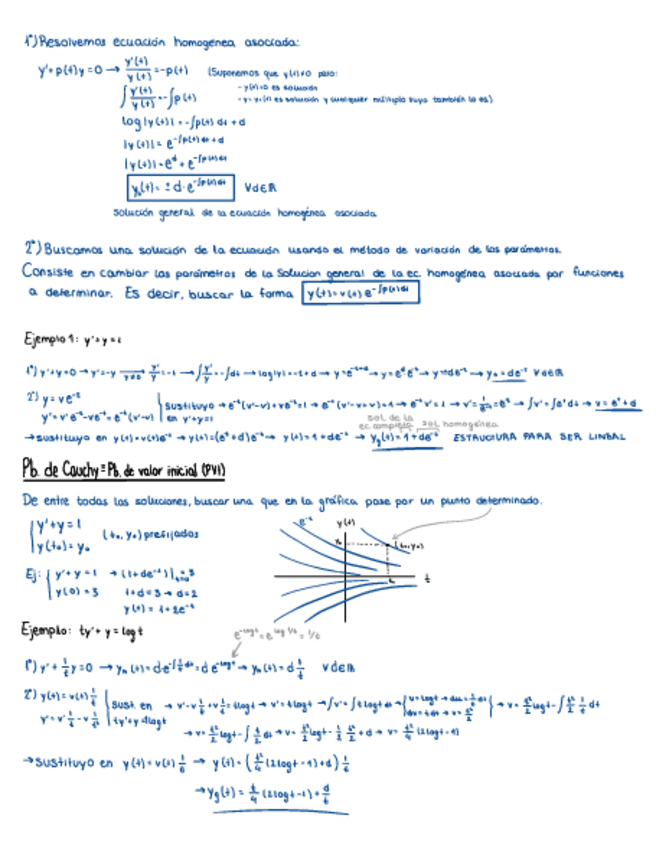 1º) Resolvemos ecuación homogénea asociada:
y'+p(t)y=0 → y'(t)/y(t) = -p(t) (Suponemos que y(t)≠0 para:
- y(t)=0 es solución
∫ y'(t)/y(t) = -∫p(t) - y=y₁(t) es solución y cualquier múltiplo suyo también lo es)
log|y(t)| = -∫p(t) dt + d
|y(t)| = e^{-∫p(t)dt+d}
|y(t)| = e^d + e^{-∫p(t)dt}
yₕ(t) = ± d·e^{-∫p(t)dt} ∀d∈ℝ
Solución general de la ecuación homogénea asociada
2º) Buscamos una solución de la ecuación usando el método de variación de los parámetros.
Consiste en cambiar los parámetros de la solución general de la ec. homogénea asociada por funciones
a determinar. Es decir, buscar la forma y(t)=v(t) e^{-∫p(t)dt}
Ejemplo 1: y'+y=1
1º) y'+y=0 → y'=-y → y≠0 y'/y = -1 → ∫ y'/y = -∫dt → log|y| = -t+d → y=e^{-t+d} → y=e^d e^{-t} → y=de^{-t} → yₕ=de^{-t} ∀d∈ℝ
2º) y=ve^{-t} | Sustituyo → e^{-t}(v'-v)+ve^{-t}=1 → e^{-t}(v'-v+v)=1 → e^{-t}v'=1 → v'=1/e^{-t}=e^t → ∫v'=∫e^t dt → v=e^t+d
y'=v'e^{-t}-ve^{-t}=e^{-t}(v'-v) | en y'+y=1
sol. de la ec. completa sol. homogénea
→ sustituyo en y(t)=v(t)e^{-t} → y(t)=(e^t+d)e^{-t} → y(t)=1+de^{-t} → y_g(t)=1+de^{-t} ESTRUCTURA PARA SER LINEAL
Pb. de Cauchy = Pb. de valor inicial (PVI)
De entre todas las soluciones, buscar una que en la gráfica pase por un punto determinado.
{ y'+y=1
y(t₀)=y₀ (t₀, y₀) prefijados
e^{-t} y(t) y₀ (t₀,y₀) t₀ t
Ej: { y'+y=1 → (1+de^{-t})|_{t=0}=3
y(0)=3 1+d=3 → d=2
y(t)=1+2e^{-t}
Ejemplo: ty'+y=log t
e^{-log t}=e^{log 1/t}=1/t
1º) y'+1/t y=0 → yₕ(t)=de^{-∫1/t dt}=de^{-log t} → yₕ(t)=d 1/t ∀d∈ℝ
2º) y(t)=v(t) 1/t | Sust. en → v'-v 1/t+v 1/t=tlogt → v'=tlogt → ∫v'=∫tlogt dt → {u=logt → du=1/t dt; dv=t dt → v=t²/2} → v=t²/2 logt-∫t²/2 1/t dt
y'=v' 1/t-v 1/t² | ty'+y=tlogt
→ v=t²/2 logt-∫t/2 dt → v=t²/2 logt-1/2 t²/2+d → v=t²/4 (2logt-1)
→ sustituyo en y(t)=v(t) 1/t → y(t)=(t²/4 (2logt-1)+d) 1/t
→ y_g(t)=t/4 (2logt-1)+d/t